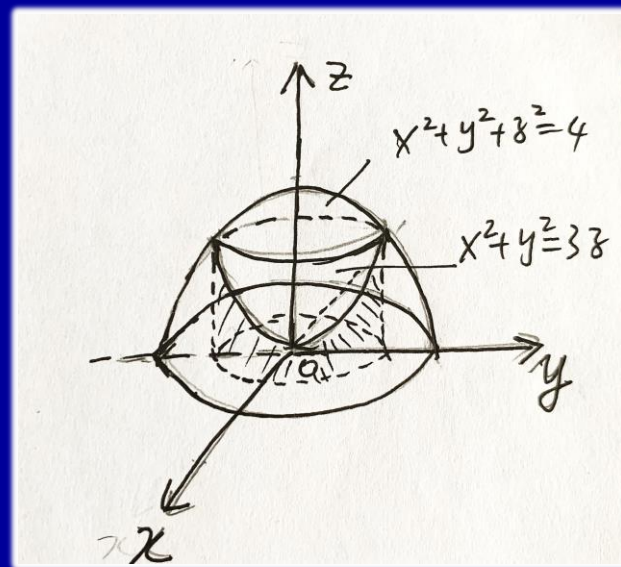 z
x²+y²+z²=4
x²+y²=3z
O
y
x